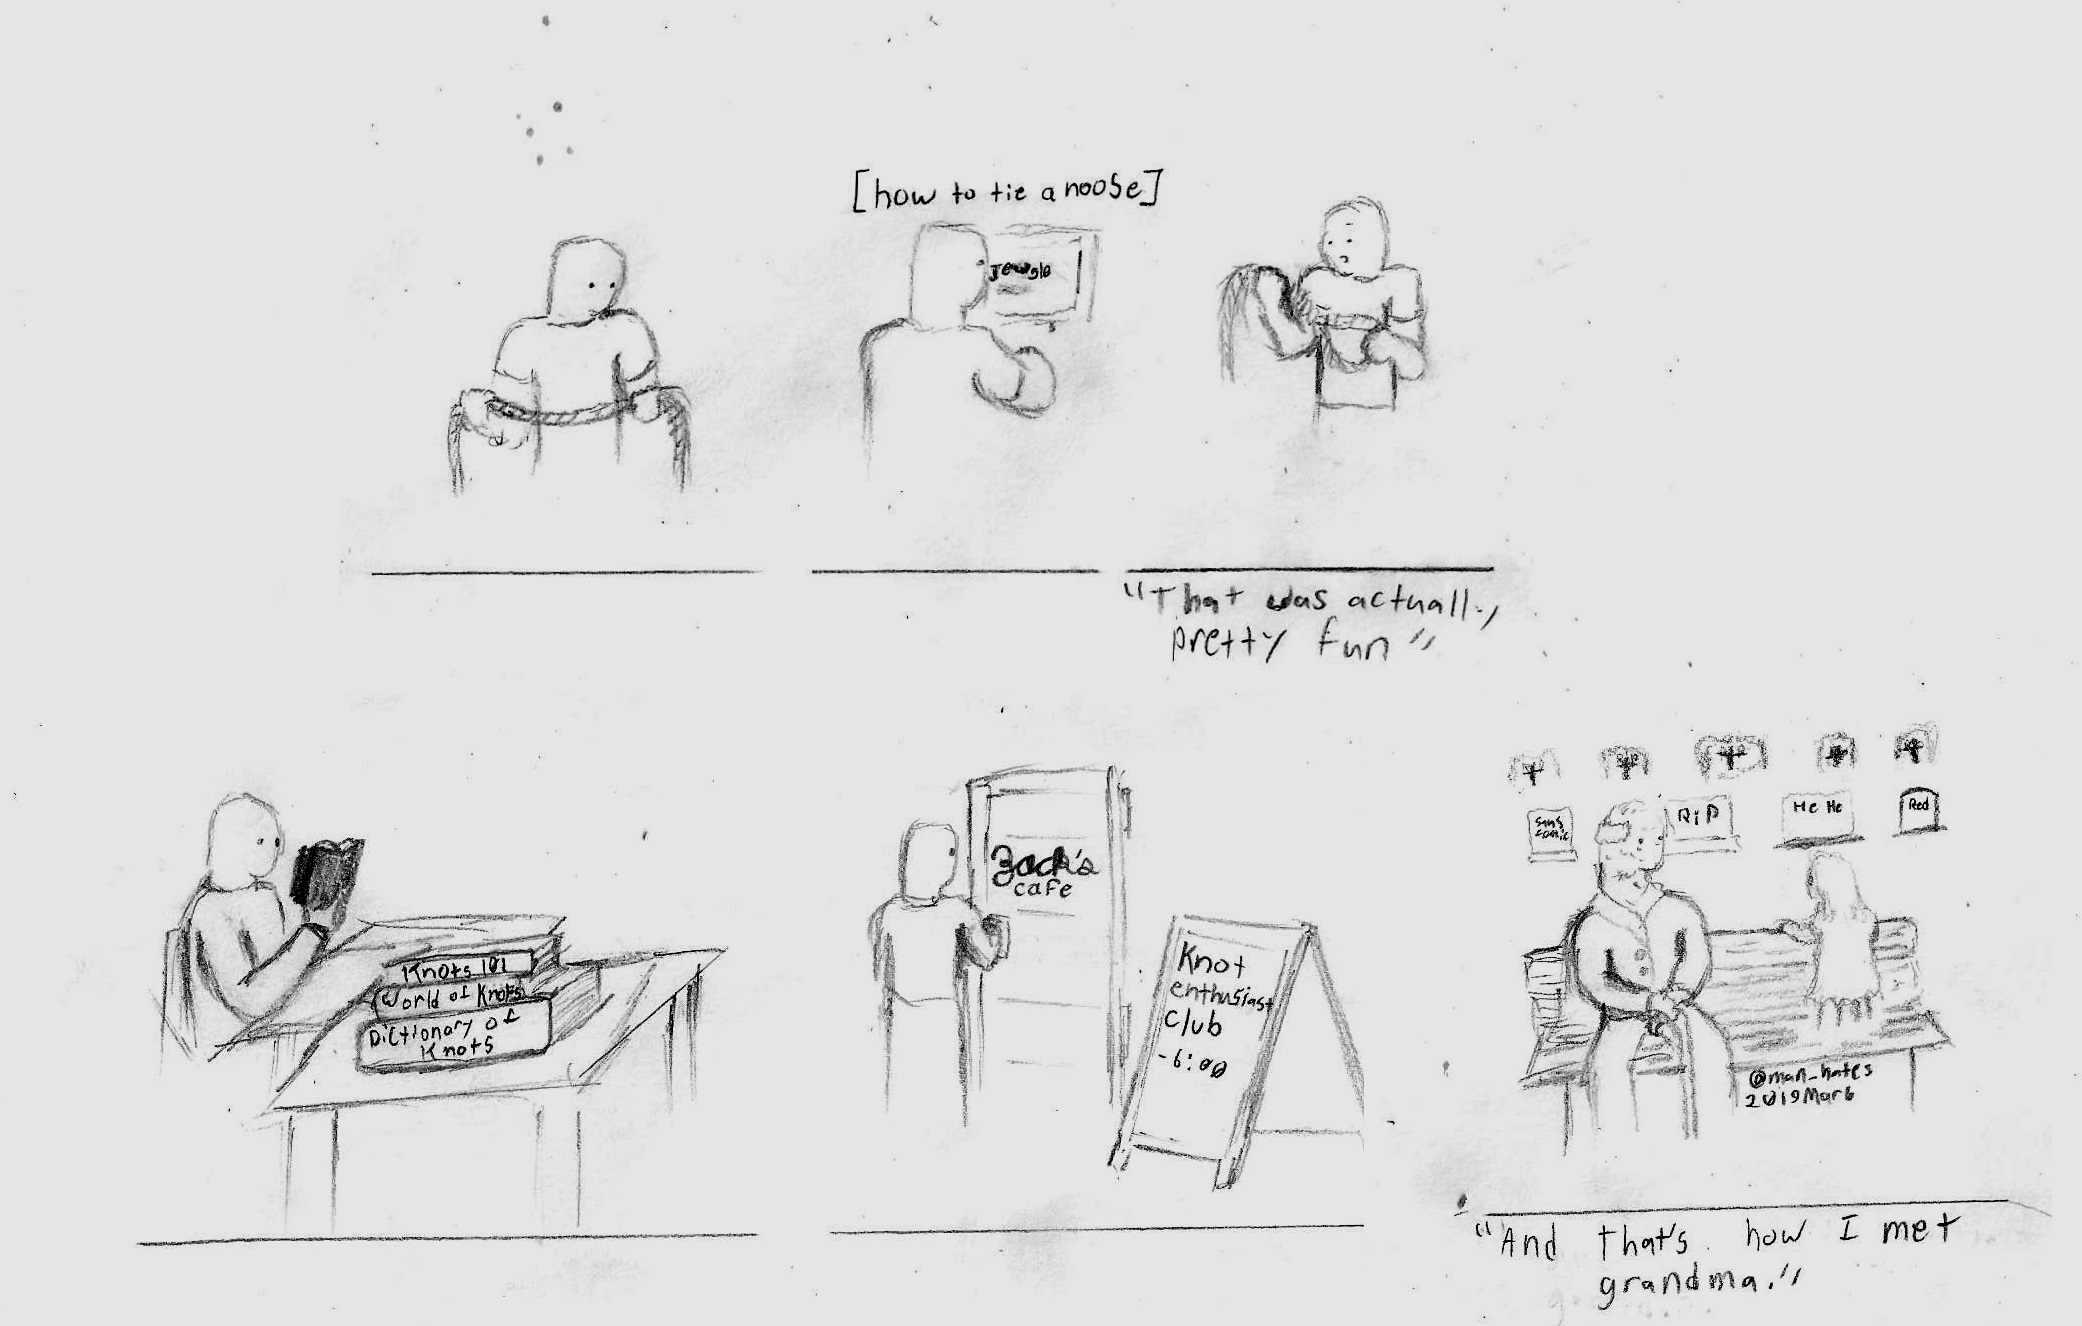 [how to tie a noose]
Jewgle
"That was actually
pretty fun"
Knots 101
World of Knots
Dictionary of
Knots
Zack's
cafe
Knot
enthusiast
club
-6:00
Sans
comic
RiP
He He
Red
@man_hates
2019Mar6
"And that's how I met
grandma."